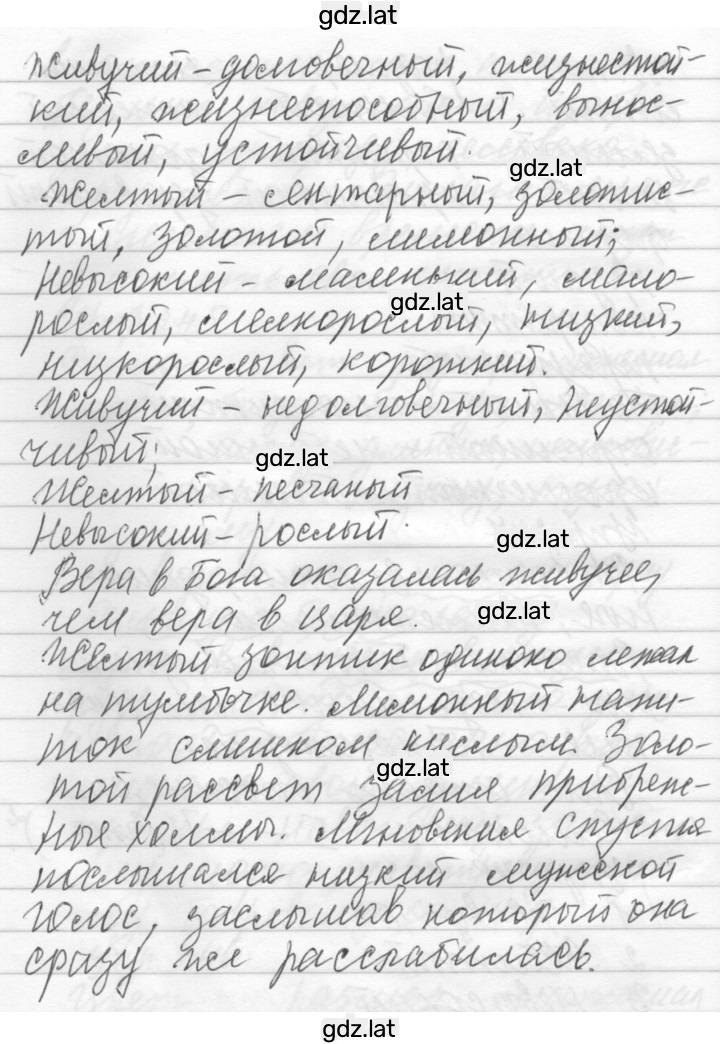 gdz.lat
Живучий – долговечный, жизнестой-
кий, жизнеспособный, вынос-
ливый, устойчивый.
gdz.lat
Желтый – янтарный, золотис-
тый, золотой, лимонный;
Невысокий – маленький, мало-
gdz.lat
рослый, мелкорослый, низкий,
низкорослый, короткий.
Живучий – недолговечный, неустой-
чивый;
gdz.lat
Желтый – песчаный
Невысокий – рослый.
gdz.lat
Вера в Бога оказалась живучее,
чем вера в царя.
gdz.lat
Желтый зонтик одиноко лежал
на тумбочке. Лимонный напи-
ток слишком кислым. Золо-
gdz.lat
той рассвет залил прибреж-
ные холмы. Мгновения спустя
послышался низкий мужской
голос, заслышав который она
сразу же расслабилась.
gdz.lat